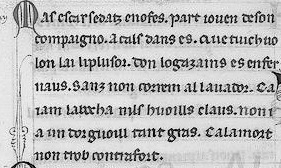 Mas escarsedatz enofes. part iouen deson
compaigno. A tals dans es. Que tuich uo
lon lai li plusor. Don logazains es enfer
naus. Sanz non correm al lauador. Ca
iam la boccha nils huoills claus. Non i
a un dorguoill tant gras. Calamort
non trob contrafort.